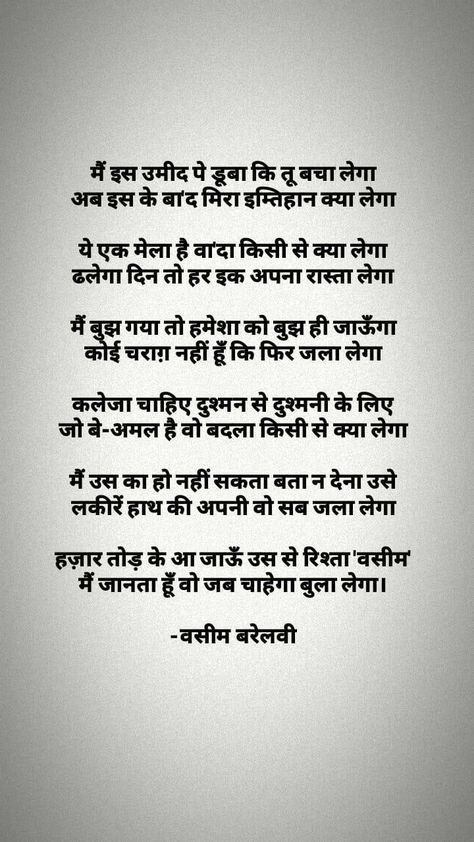 मैं इस उमीद पे डूबा कि तू बचा लेगा
अब इस के बा'द मिरा इम्तिहान क्या लेगा
ये एक मेला है वा'दा किसी से क्या लेगा
ढलेगा दिन तो हर इक अपना रास्ता लेगा
मैं बुझ गया तो हमेशा को बुझ ही जाऊँगा
कोई चराग़ नहीं हूँ कि फिर जला लेगा
कलेजा चाहिए दुश्मन से दुश्मनी के लिए
जो बे-अमल है वो बदला किसी से क्या लेगा
मैं उस का हो नहीं सकता बता न देना उसे
लकीरें हाथ की अपनी वो सब जला लेगा
हज़ार तोड़ के आ जाऊँ उस से रिश्ता 'वसीम'
मैं जानता हूँ वो जब चाहेगा बुला लेगा।
-वसीम बरेलवी